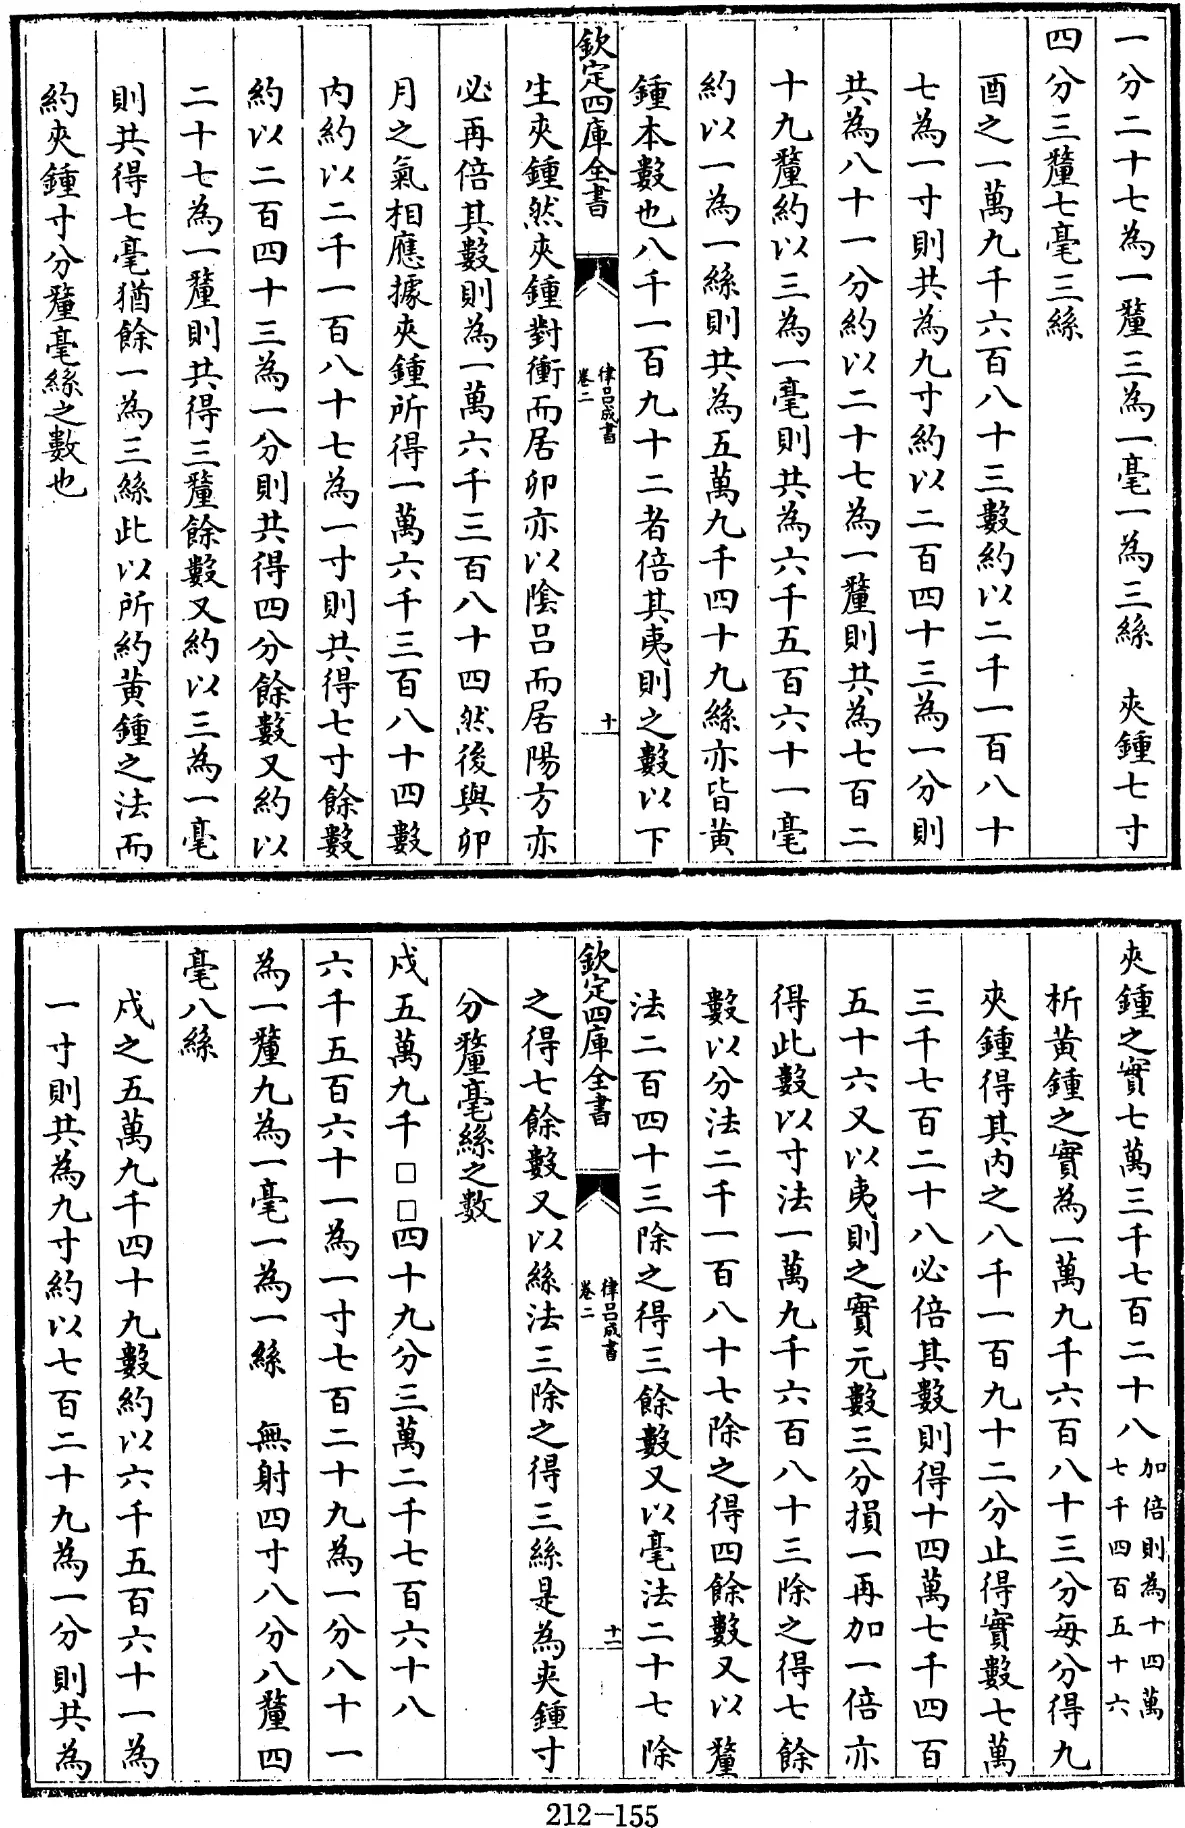 一分二十七為一釐三為一毫一為三絲　夾鍾七寸
四分三釐七毫三絲
酉之一萬九千六百八十三數約以二千一百八十
七為一寸則共為九寸約以二百四十三為一分則
共為八十一分約以二十七為一釐則共為七百二
十九釐約以三為一毫則共為六千五百六十一毫
約以一為一絲則共為五萬九千四十九絲亦皆黃
鍾本數也八千一百九十二者倍其夷則之數以下
欽定四庫全書
律呂成書
卷二
十一
生夾鍾然夾鍾對衝而居卯亦以陰呂而居陽方亦
必再倍其數則為一萬六千三百八十四然後與卯
月之氣相應據夾鍾所得一萬六千三百八十四數
內約以二千一百八十七為一寸則共得七寸餘數
約以二百四十三為一分則共得四分餘數又約以
二十七為一釐則共得三釐餘數又約以三為一毫
則共得七毫猶餘一為三絲此以所約黃鍾之法而
約夾鍾寸分釐毫絲之數也
夾鍾之實七萬三千七百二十八加倍則為十四萬七千四百五十六
析黃鍾之實為一萬九千六百八十三分每分得九
夾鍾得其內之八千一百九十二分止得實數七萬
三千七百二十八必倍其數則得十四萬七千四百
五十六又以夷則之實元數三分損一再加一倍亦
得此數以寸法一萬九千六百八十三除之得七餘
數以分法二千一百八十七除之得四餘數又以釐
法二百四十三除之得三餘數又以毫法二十七除
欽定四庫全書
律呂成書
卷二
十二
之得七餘數又以絲法三除之得三絲是為夾鍾寸
分釐毫絲之數
戌五萬九千□□四十九分三萬二千七百六十八
六千五百六十一為一寸七百二十九為一分八十一
為一釐九為一毫一為一絲　無射四寸八分八釐四
毫八絲
戌之五萬九千四十九數約以六千五百六十一為
一寸則共為九寸約以七百二十九為一分則共為
212-155